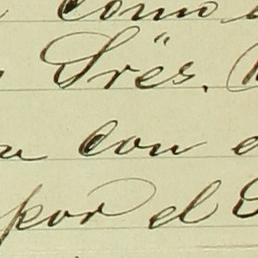 como
Srës.
con
por el